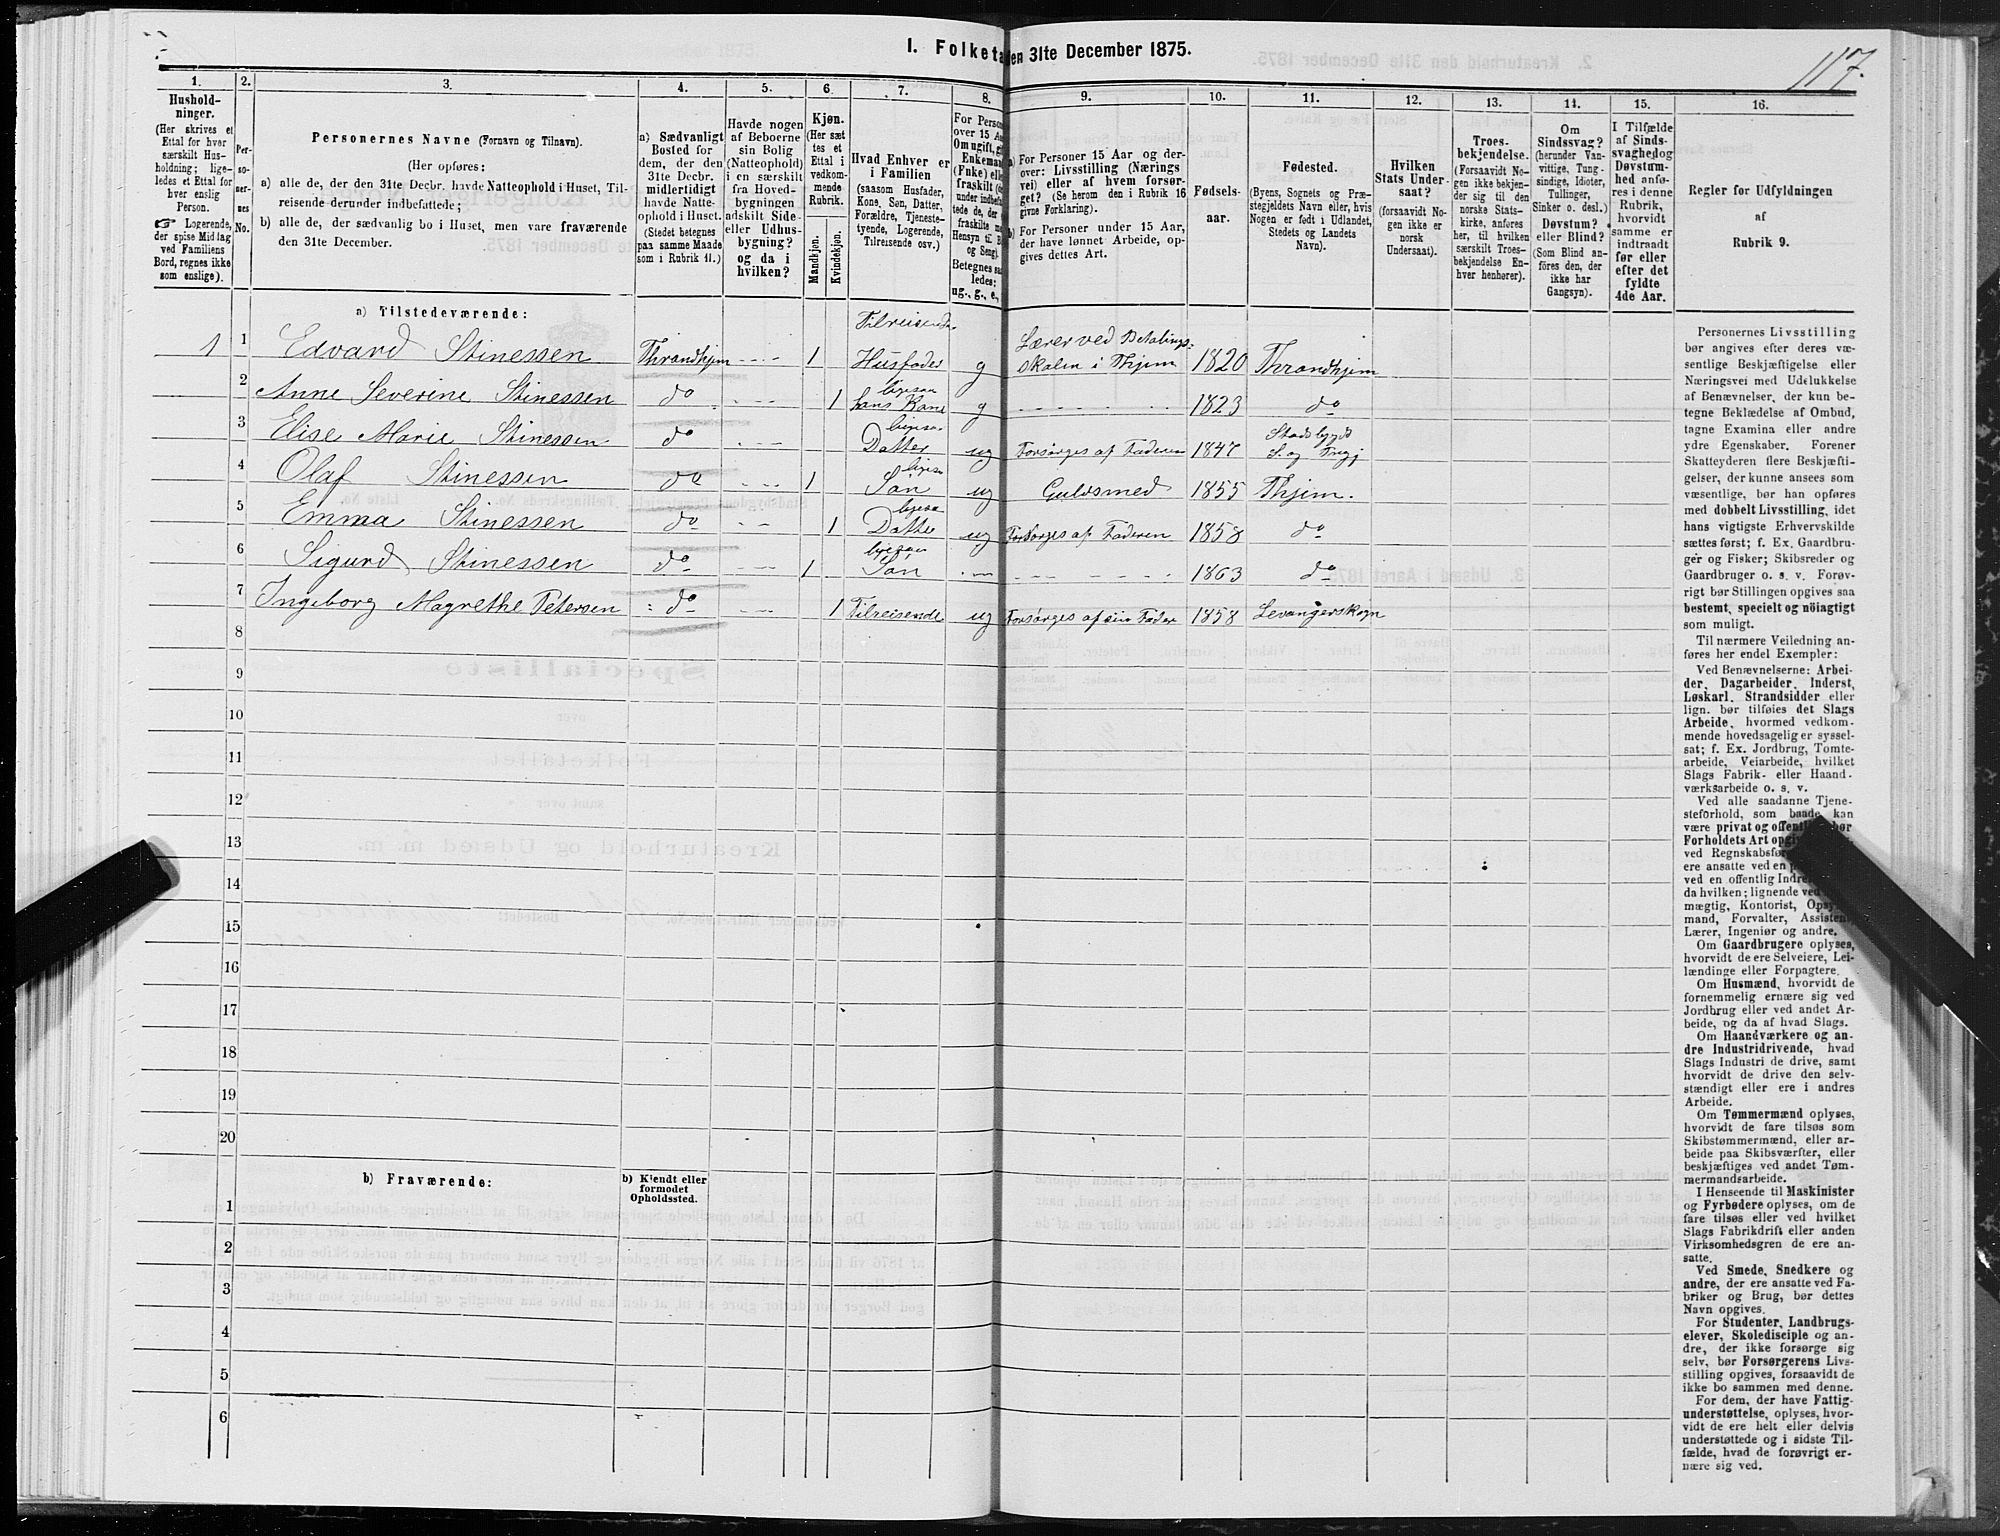 I. Folketa
en 31te December 1875.
117.
1. 2. 3. 4. 5. 6. 7. 8. 9. 10. 11. 12. 13. 14. 15. 16.
Hushold-
ninger.
(Her skrives et
Ettal for hver
særskilt Hus-
holdning; lige-
ledes et Ettal for
hver enslig
Person.
☞ Logerende,
der spise Middag
ved Familiens
Bord, regnes ikke
som enslige).
Per-
so-
ner-
nes
No.
Personernes Navne (Fornavn og Tilnavn).
(Her opføres:
a) alle de, der den 31te Decbr. havde Natteophold i Huset, Til-
reisende derunder indbefattede;
b) alle de, der sædvanlig bo i Huset, men vare fraværende
den 31te December.
a) Sædvanligt
Bosted for
dem, der den
31te Decbr.
midlertidigt
havde Natte-
ophold i Huset.
(Stedet betegnes
paa samme Maade
som i Rubrik 11.)
Havde nogen
af Beboerne
sin Bolig
(Natteophold)
i en særskilt
fra Hoved-
bygningen
adskilt Side-
eller Udhus-
bygning?
og da i
hvilken?
Kjøn.
(Her sæt
tes et
Ettal i
vedkom-
mende
Rubrik.
Mandkjøn.
Kvindekjøn.
Hvad Enhver er
i Familien
(saasom Husfader,
Kone, Søn, Datter,
Forældre, Tjeneste-
tyende, Logerende,
Tilreisende osv.)
For Person
over 15 Aa
Om ugift, gi
Enkeman
(Fnke) elle
fraskilt (
under indbefat
tede de, der
fraskilte m
Hensyn til B
og Seng).
Betegnes sa
ledes:
ug., g., e,
a) For Personer 15 Aar og der-
over: Livsstilling (Nærings
vei) eller af hvem forsør-
get? (Se herom den i Rubrik 16
givne Forklaring).
b) For Personer under 15 Aar,
der have lønnet Arbeide, op-
gives dettes Art.
Fødsels-
aar.
Fødested.
(Byens, Sognets og Præ-
stegjeldets Navn eller, hvis
Nogen er født i Udlandet,
Stedets og Landets
Navn).
Hvilken
Stats Under-
saat?
(forsaavidt No-
gen ikke er
norsk
Undersaat).
Troes-
bekjendelse.
(Forsaavidt No-
gen ikke bekjen-
der sig til den
norske Stats-
kirke, anføres
her, til hvilken
særskilt Troes-
bekjendelse En-
hver henhører).
Om
Sindssvag?
(herunder Van-
vittige, Tung-
sindige, Idioter,
Tullinger,
Sinker o. desl.)
Døvstum?
eller Blind?
(Som Blind an-
føres den, der
ikke har
Gangsyn).
I Tilfælde
af Sinds-
svaghed og
Døvstum-
hed anfø-
res i denne
Rubrik,
hvorvidt
samme er
indtraadt
før eller
efter det
fyldte
4de Aar.
Regler for Udfyldningen
af
Rubrik 9.
a) Tilstedeværende:
1 1 Edvard Stinessen Thrandhjem 1 Tilreisende Husfader g Lærer ved Betalings-
skolen i Thjem 1820 Thrandhjem
2 Anne Severine Stinessen do 1 ligesaa hans Kone g 1823 do
3 Elise Marie Stinessen do ligesaa Datter ug Forsørges af Faderen 1847 Stadsbygd
S. og Prgj
4 Olaf Stinessen do 1 ligesaa Søn ug Guldsmed 1855 Thjem.
5 Emma Stinessen do 1 ligesaa Datter ug Forsørges af Faderen 1858 do
6 Sigurd Stinessen do 1 ligesaa Søn 1863 do
7 Ingeborg Magrethe Petersen do 1 Tilreisende ug Forsørges af sin Fader 1858 Levangerskogn
8
9
10
11
12
13
14
15
16
17
18
19
20
b) Fraværende:
b) Kjendt eller
formodet
Opholdssted.
1
2
3
4
5
6
Personernes Livsstilling
bør angives efter deres væ-
sentlige Beskjæftigelse eller
Næringsvei med Udelukkelse
af Benævnelser, der kun be-
tegne Beklædelse af Ombud,
tagne Examina eller andre
ydre Egenskaber. Forener
Skatteyderen flere Beskjæfti-
gelser, der kunne ansees som
væsentlige, bør han opføres
med dobbelt Livsstilling, idet
hans vigtigste Erhvervskilde
sættes først; f. Ex. Gaardbru-
ger og Fisker; Skibsreder og
Gaardbruger o. s. v. Forøv-
rigt bør Stillingen opgives saa
bestemt, specielt og nöiagtigt
som muligt.
Til nærmere Veiledning an-
føres her endel Exempler:
Ved Benævnelserne: Arbei-
der, Dagarbeider, Inderst,
Løskarl, Strandsidder eller
lign. bør tilføies det Slags
Arbeide, hvormed vedkom-
mende hovedsagelig er syssel-
sat; f. Ex. Jordbrug, Tomte-
arbeide, Veiarbeide, hvilket
Slags Fabrik- eller Haand-
værksarbeide o. s. v.
Ved alle saadanne Tjene-
steforhold, som baade kan
være privat og offentligt, bør
Forholdets Art opgives
ved Regnskabsfør
ere ansatte ved en p
ved en offentlig Indre
da hvilken; lignende ved
mægtig, Kontorist, Opsy
mand, Forvalter, Assistent,
Lærer, Ingeniør og andre.
Om Gaardbrugere oplyses,
hvorvidt de ere Selveiere, Lei-
lændinge eller Forpagtere.
Om Husmænd, hvorvidt de
fornemmelig ernære sig ved
Jordbrug eller ved andet Ar-
beide, og da af hvad Slags.
Om Haandværkere og an-
dre Industridrivende, hvad
Slags Industri de drive, samt
hvorvidt de drive den selv-
stændigt eller ere i andres
Arbeide.
Om Tømmermænd oplyses,
hvorvidt de fare tilsøs som
Skibstømmermænd, eller ar-
beide paa Skibsværfter, eller
beskjæftiges ved andet Tøm-
mermandsarbeide.
I Henseende til Maskinister
og Fyrbødere oplyses, om de
fare tilsøs eller ved hvilket
Slags Fabrikdrift eller anden
Virksomhedsgren de ere an-
satte.
Ved Smede, Snedkere og
andre, der ere ansatte ved Fa-
briker og Brug, bør dettes
Navn opgives.
For Studenter, Landbrugs-
elever, Skoledisciple og an-
dre, der ikke forsørge sig
selv, bør Forsørgerens Livs-
stilling opgives, forsaavidt de
ikke bo sammen med denne.
For dem, der have Fattig-
understøttelse, oplyses, hvor-
vidt de ere helt eller delvis
understøttede og i sidste Til-
fælde, hvad de forøvrigt er-
nære sig ved.